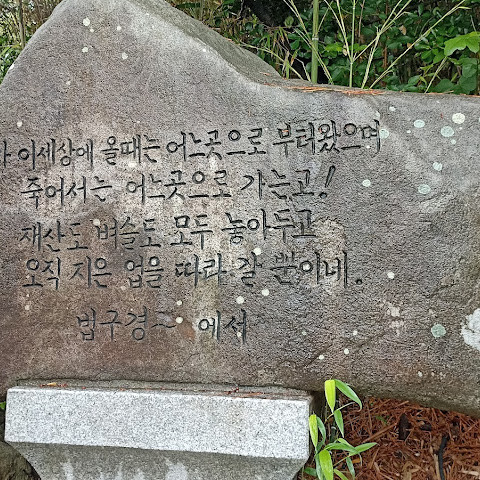 이세상에 올때는 어느곳으로 부터왔으며
죽어서는 어느곳으로 가는고!
재산도 벼슬도 모두 놓아두고
오직 지은 업을 따라 갈 뿐이네.
법구경~ 에서